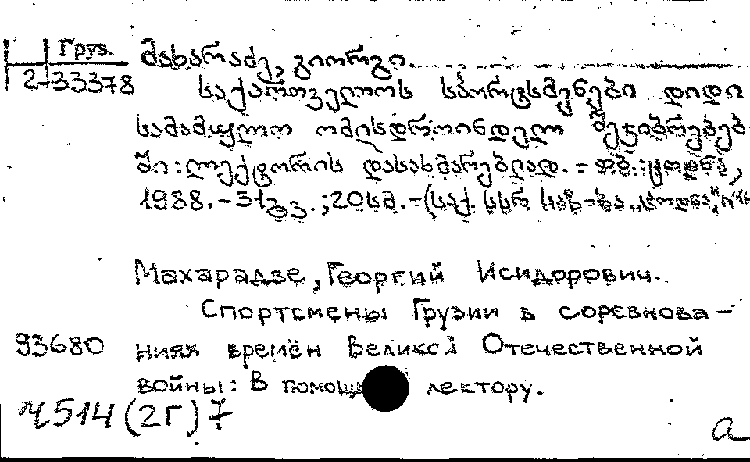 Груз.
2-33378
მახარაძე, გიორგი.
საქართველოს სპორტსმენები დიდი
სამამულო ომისდროინდელ შეჯიბრებებ-
ში : ლექტორის დასახმარებლად. - თბ.: ცოდნა,
1988. - 31 გვ. ; 20 სმ. - (საქ. სსრ საზ-ბა „ცოდნა"
Махарадзе, Георгий Исидорович.
Спортсмены Грузии в соревнова-
93680
ниях времён Великой Отечественной
войны: В помощь лектору.
Ч514(2Г)7
а